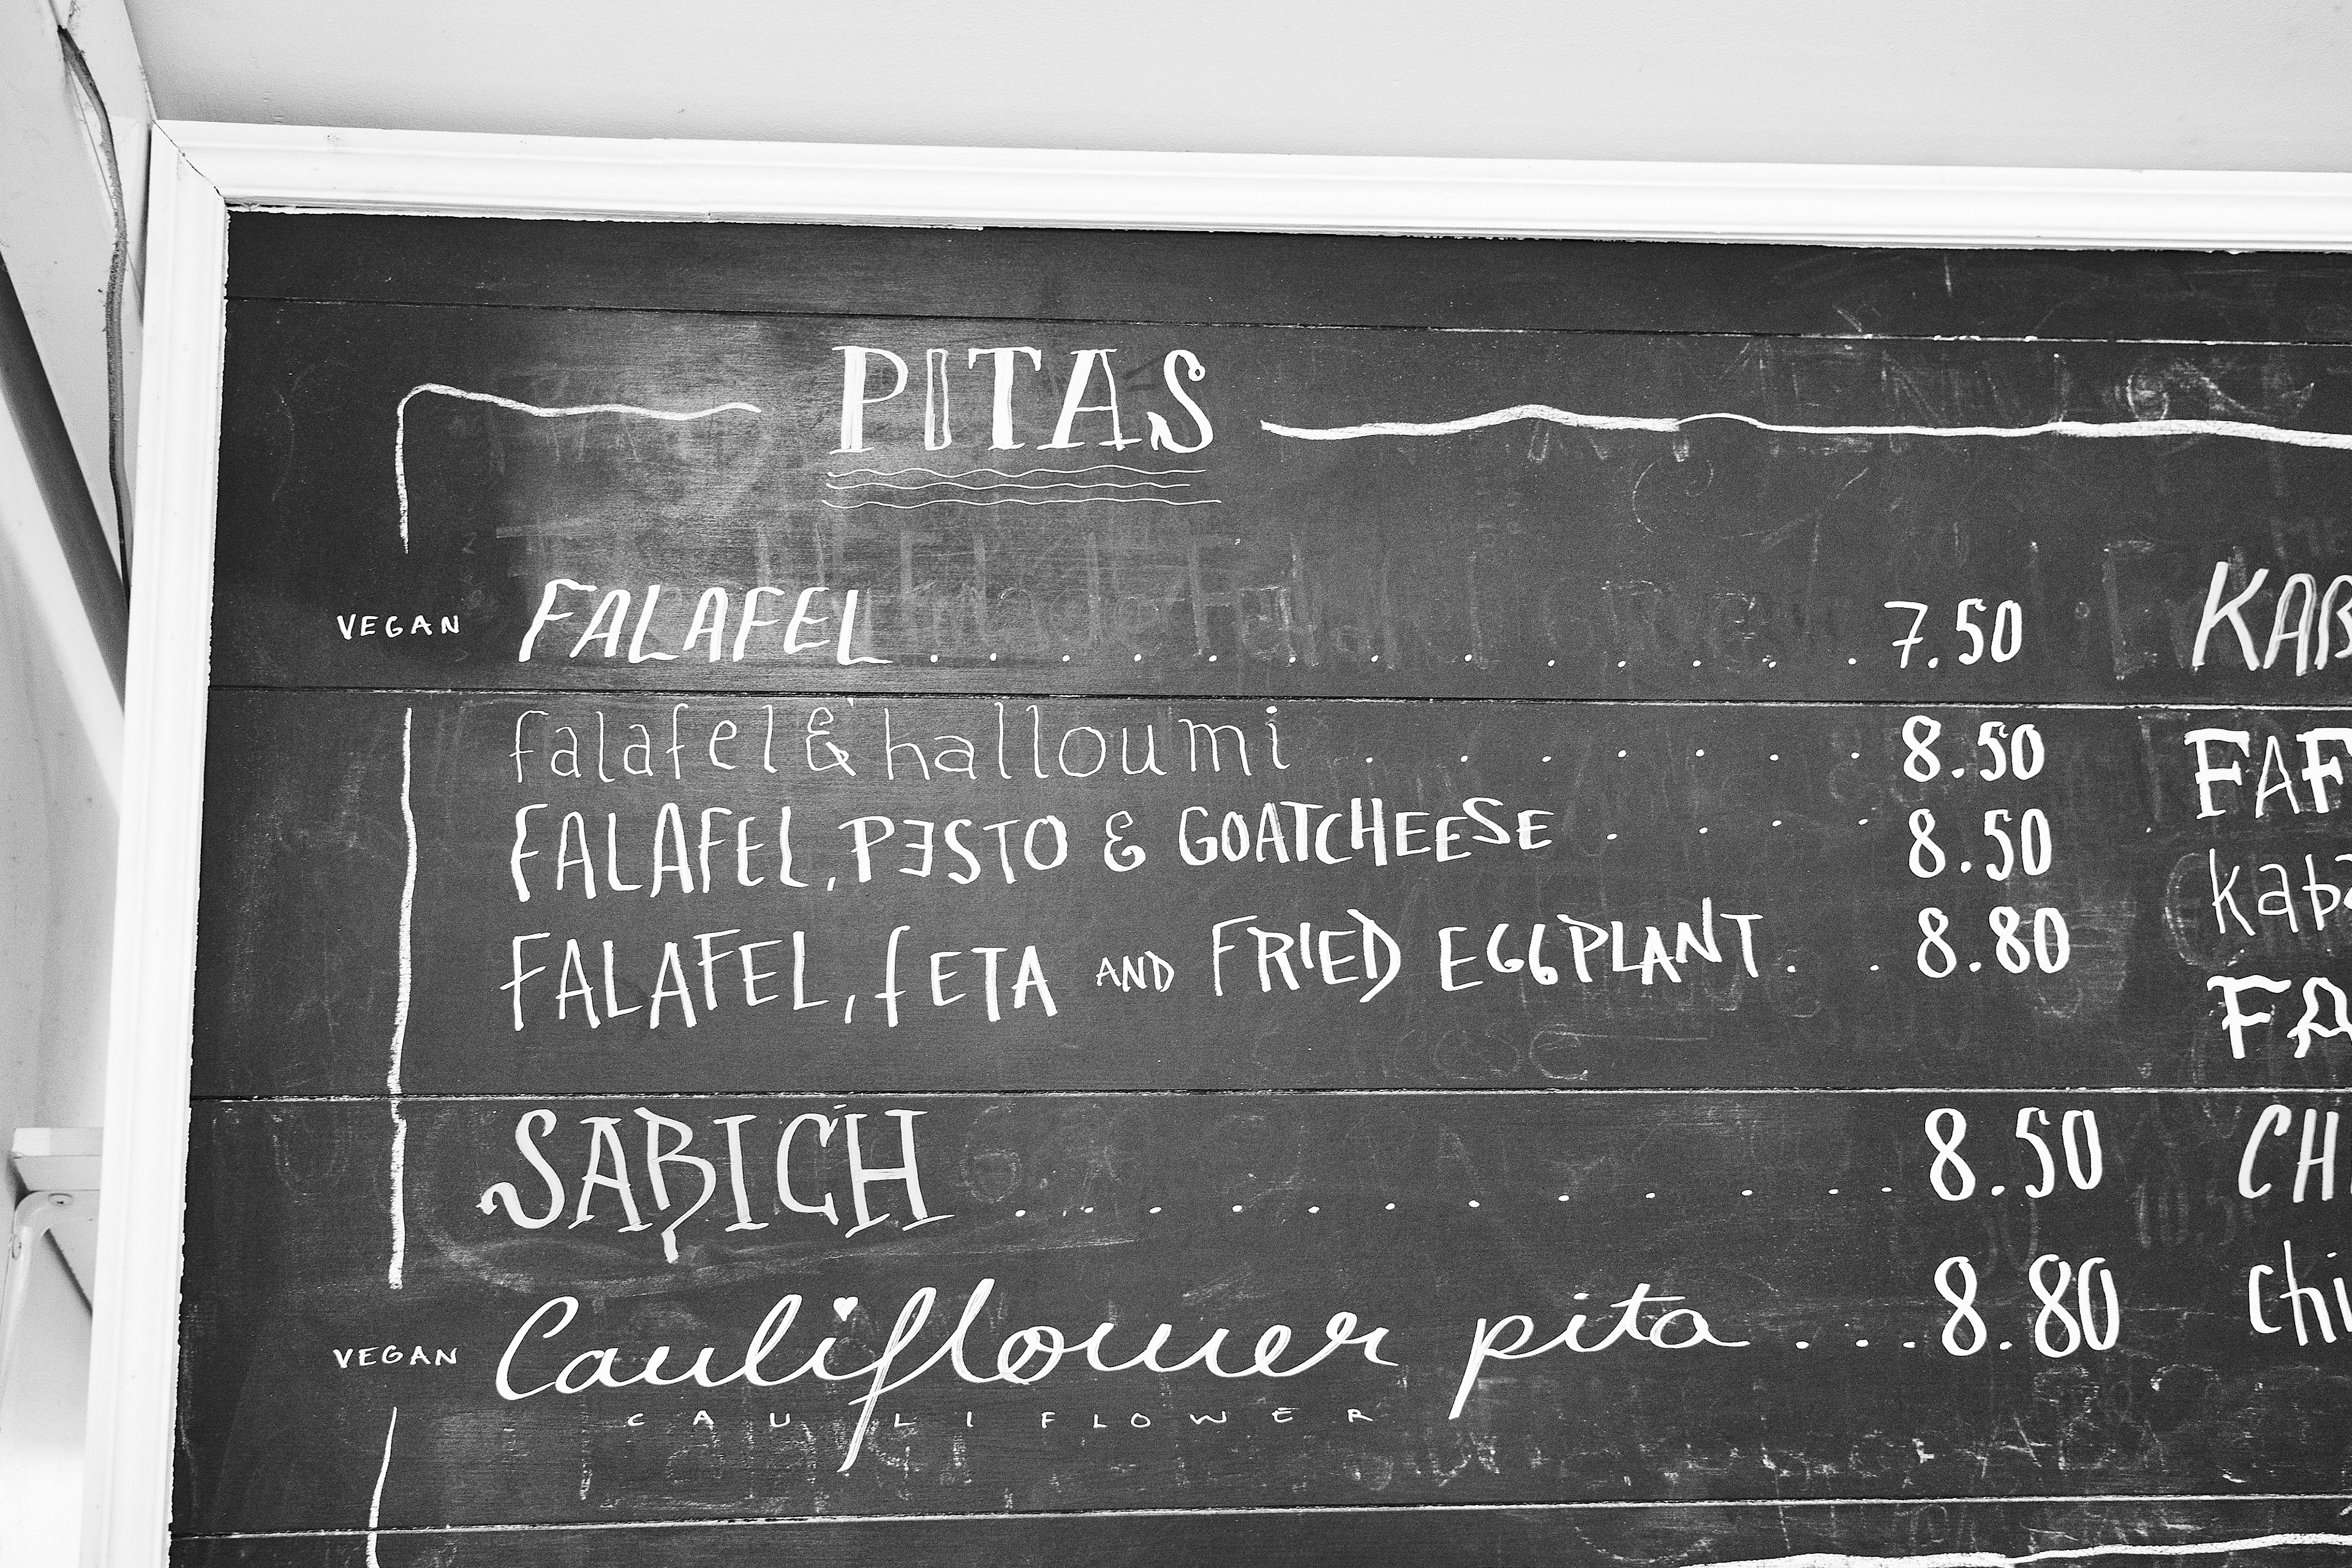 PITAS
VEGAN FALAFEL . . . . . . . . . . . . . 7.50
falafel & halloumi . . . . . . . 8.50
FALAFEL, PESTO & GOATCHEESE . . . . 8.50
FALAFEL, fETA AND FRIED EGGPLANT . . 8.80
SABICH . . . . . . . . . . . . 8.50
VEGAN Cauliflower pita . . . . 8.80
CAULIFLOWER